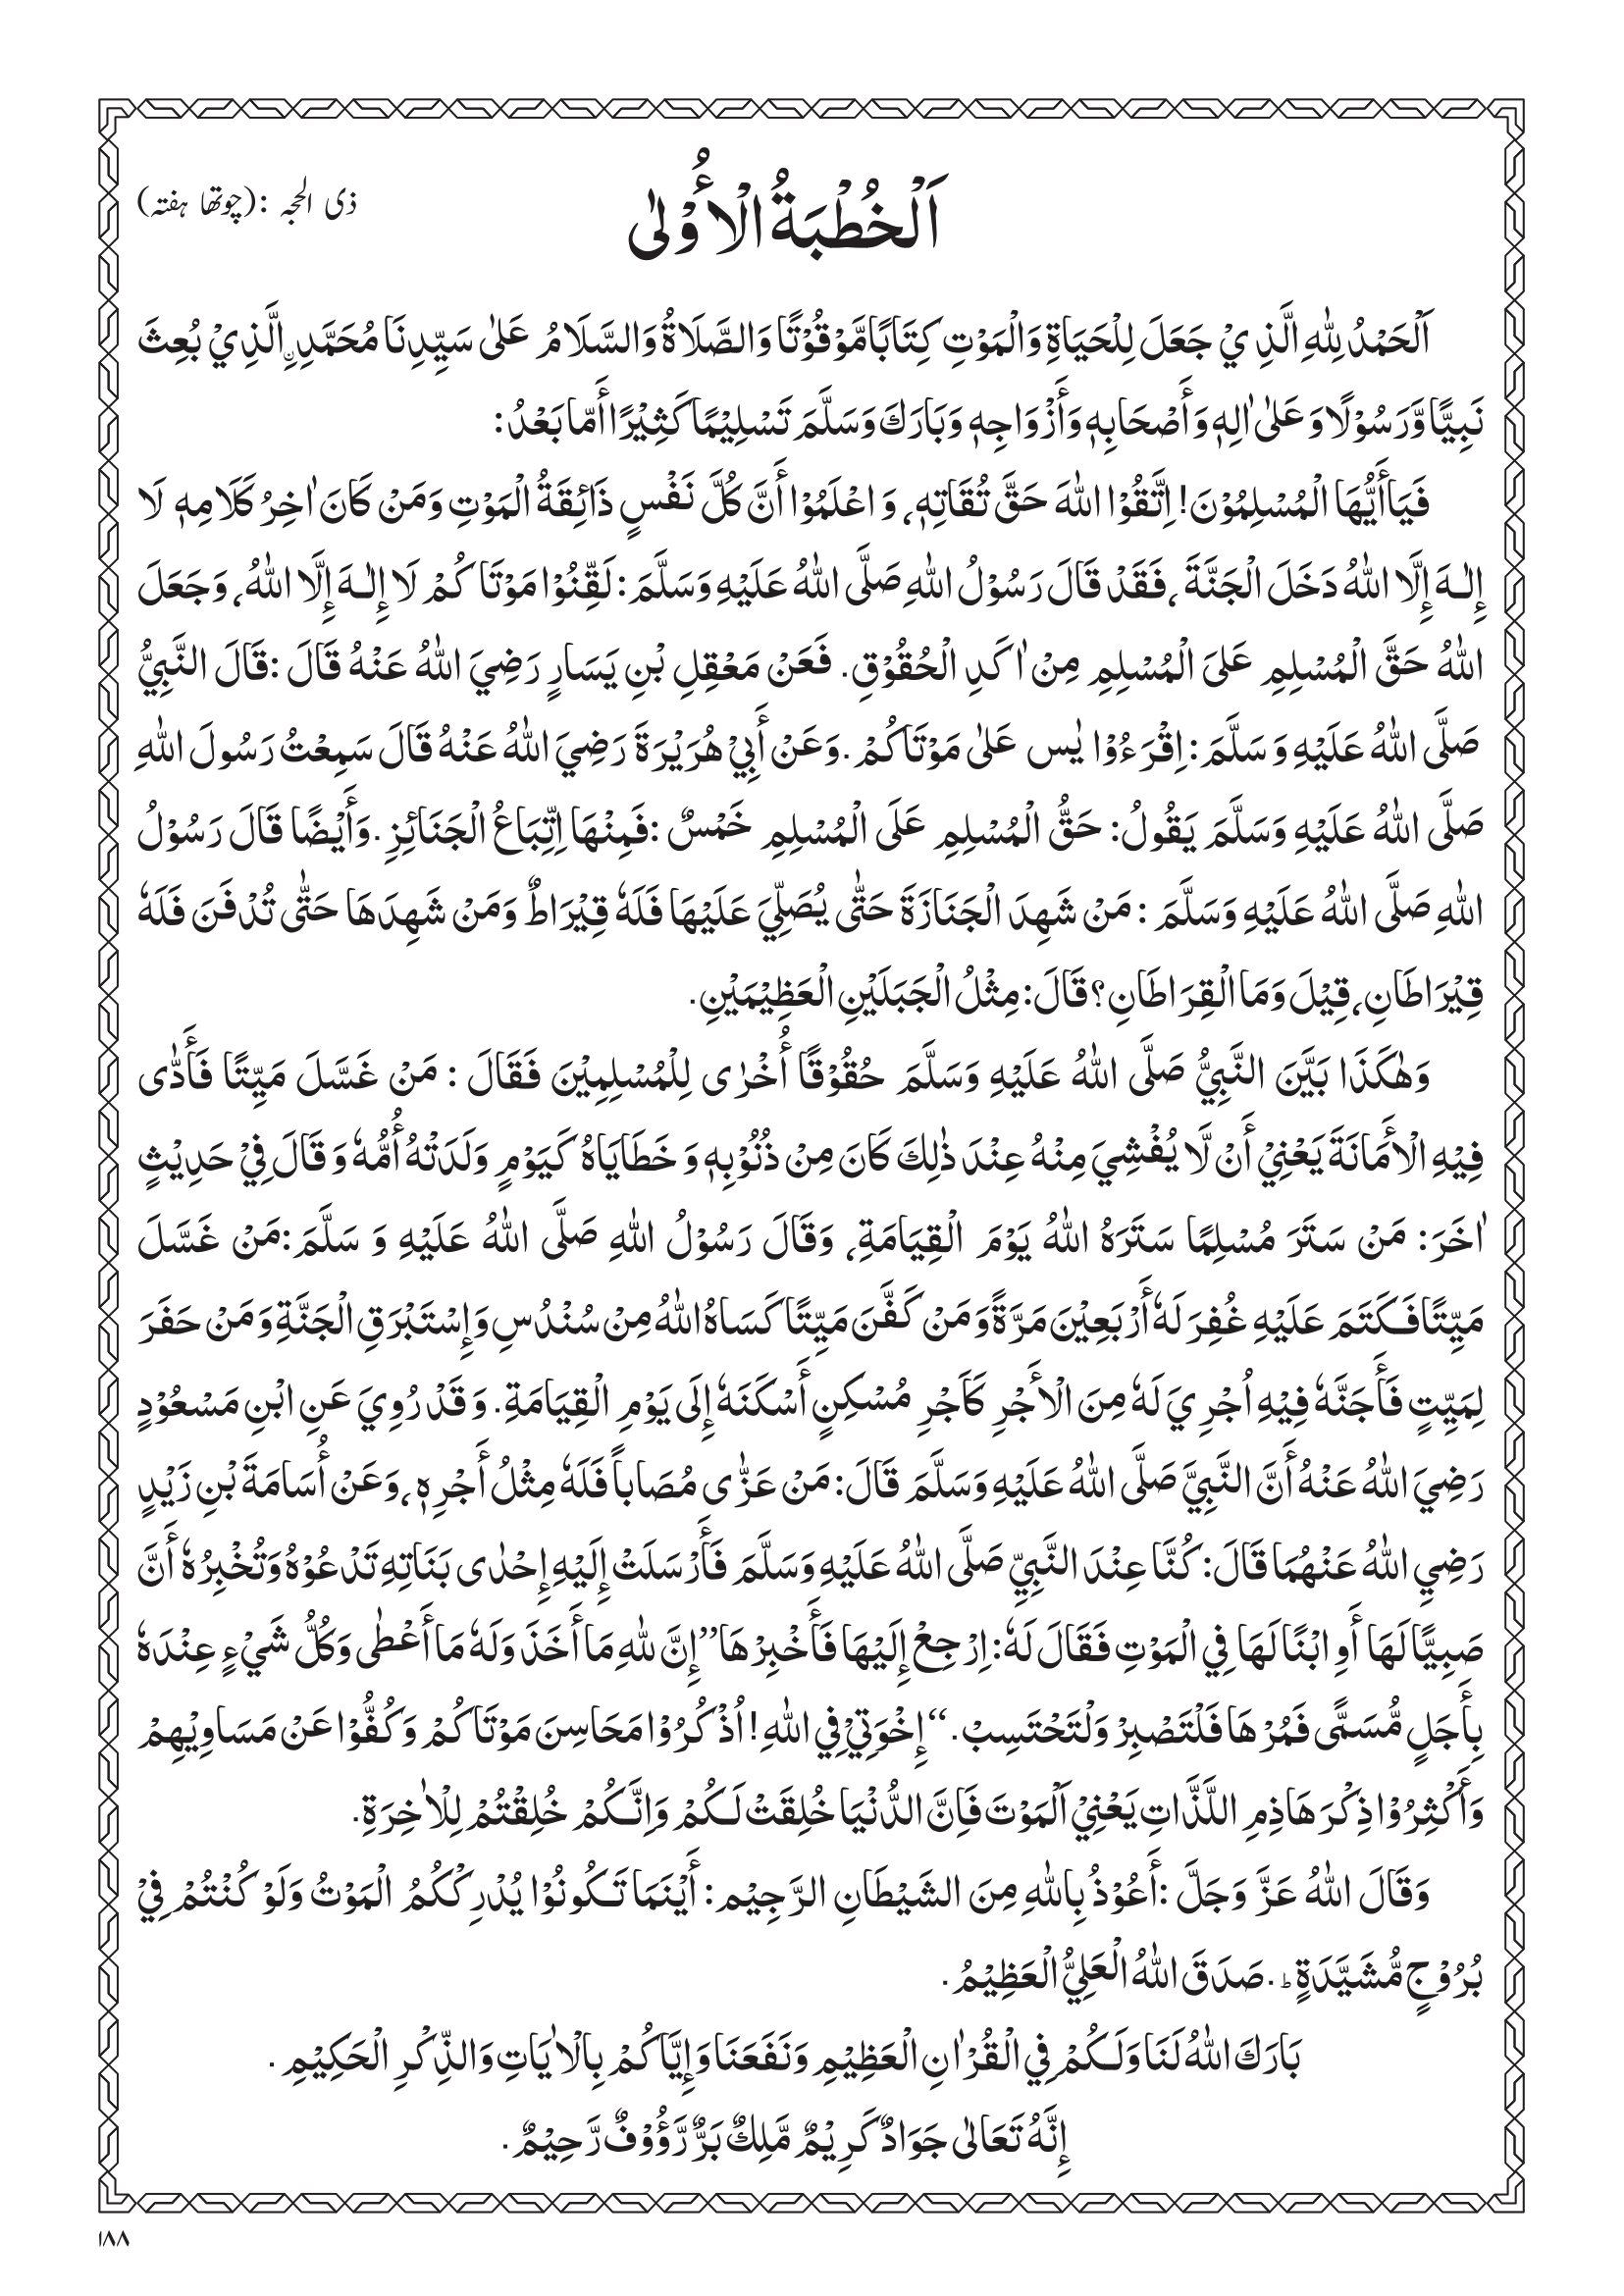 ذی الحجہ :(چوتھا ہفتہ)
اَلْخُطْبَةُ الْأُوْلٰى
اَلْحَمْدُ لِلّٰهِ الَّذِيْ جَعَلَ لِلْحَيَاةِ وَالْمَوْتِ كِتَابًا مَّوْقُوْتًا وَالصَّلَاةُ وَالسَّلَامُ عَلىٰ سَيِّدِنَا مُحَمَّدِ ۣالَّذِيْ بُعِثَ
نَبِيًّا وَّرَسُوْلًا وَعَلىٰ اٰلِهٖ وَأَصْحَابِهٖ وَأَزْوَاجِهٖ وَبَارَكَ وَسَلَّمَ تَسْلِيْمًا كَثِيْرًا أَمَّا بَعْدُ:
فَيَاأَيُّهَا الْمُسْلِمُوْنَ! اِتَّقُوْا اللهَ حَقَّ تُقَاتِهٖ، وَ اعْلَمُوْا أَنَّ كُلَّ نَفْسٍ ذَائِقَةُ الْمَوْتِ وَمَنْ كَانَ اٰخِرُ كَلَامِهٖ لَا
إِلٰـهَ إِلَّا اللهُ دَخَلَ الْجَنَّةَ ،فَقَدْ قَالَ رَسُوْلُ اللهِ صَلَّى اللهُ عَلَيْهِ وَسَلَّمَ: لَقِّنُوْا مَوْتَا كُمْ لَا إِلٰـهَ إِلَّا اللهُ، وَجَعَلَ
اللهُ حَقَّ الْمُسْلِمِ عَلىَ الْمُسْلِمِ مِنْ اٰكَدِ الْحُقُوْقِ. فَعَنْ مَعْقِلِ بْنِ يَسَارٍ رَضِيَ اللهُ عَنْهُ قَالَ :قَالَ النَّبِيُّ
صَلَّى اللهُ عَلَيْهِ وَ سَلَّمَ: اِقْرَءُوْا يٰس عَلىٰ مَوْتَاكُمْ .وَعَنْ أَبِيْ هُرَيْرَةَ رَضِيَ اللهُ عَنْهُ قَالَ سَمِعْتُ رَسُولَ اللهِ
صَلَّى اللهُ عَلَيْهِ وَسَلَّمَ يَقُولُ: حَقُّ الْمُسْلِمِ عَلَى الْمُسْلِمِ خَمْسٌ :فَمِنْهَا اِتِّبَاعُ الْجَنَائِزِ .وَأَيْضًا قَالَ رَسُوْلُ
اللهِ صَلَّى اللهُ عَلَيْهِ وَسَلَّمَ : مَنْ شَهِدَ الْجَنَازَةَ حَتّٰى يُصَلِّيَ عَلَيْهَا فَلَهٗ قِيْرَاطٌ وَمَنْ شَهِدَهَا حَتّٰى تُدْفَنَ فَلَهٗ
قِيْرَاطَانِ،قِيْلَ وَمَا الْقِرَاطَانِ؟ قَالَ: مِثْلُ الْجَبَلَيْنِ الْعَظِيْمَيْنِ.
وَهٰكَذَا بَيَّنَ النَّبِيُّ صَلَّى اللهُ عَلَيْهِ وَسَلَّمَ حُقُوْقًا أُخْرٰى لِلْمُسْلِمِيْنَ فَقَالَ : مَنْ غَسَّلَ مَيِّتًا فَأَدّٰى
فِيْهِ الْأَمَانَةَ يَعْنِيْ أَنْ لَّا يُفْشِيَ مِنْهُ عِنْدَ ذٰلِكَ كَانَ مِنْ ذُنُوْبِهٖ وَ خَطَايَاهُ كَيَوْمٍ وَلَدَتْهُ أُمُّهٗ وَ قَالَ فِيْ حَدِيْثٍ
اٰخَرَ: مَنْ سَتَرَ مُسْلِمًا سَتَرَهُ اللهُ يَوْمَ الْقِيَامَةِ، وَقَالَ رَسُوْلُ اللهِ صَلَّى اللهُ عَلَيْهِ وَ سَلَّمَ:مَنْ غَسَّلَ
مَيِّتًا فَـكَتَمَ عَلَيْهِ غُفِرَ لَهٗ أَرْبَعِيْنَ مَرَّةً وَمَنْ كَفَّنَ مَيِّتًا كَسَاهُ اللهُ مِنْ سُنْدُسِ وَإِسْتَبْرَقِ الْجَنَّةِ وَمَنْ حَفَرَ
لِمَيِّتٍ فَأَجَنَّهٗ فِيْهِ اُجْرِيَ لَهٗ مِنَ الْأَجْرِ كَاَجْرِ مُسْكِنٍ أَسْكَنَهٗ إِلَى يَوْمِ الْقِيَامَةِ. وَقَدْ رُوِيَ عَنِ ابْنِ مَسْعُوْدٍ
رَضِيَ اللهُ عَنْهُ أَنَّ النَّبِيَّ صَلَّى اللهُ عَلَيْهِ وَسَلَّمَ قَالَ: مَنْ عَزّٰى مُصَاباً فَلَهٗ مِثْلُ أَجْرِهٖ ،وَعَنْ أُسَامَةَ بْنِ زَيْدٍ
رَضِيِ اللهُ عَنْهُمَا قَالَ: كُنَّا عِنْدَ النَّبِيِّ صَلَّى اللهُ عَلَيْهِ وَسَلَّمَ فَأَرْسَلَتْ إِلَيْهِ إِحْدٰى بَنَاتِهٖ تَدْعُوْهُ وَتُخْبِرُهٗ أَنَّ
صَبِيًّا لَهَا أَوِ ابْنًا لَهَا فِي الْمَوْتِ فَقَالَ لَهٗ: اِرْجِعْ إِلَيْهَا فَأَخْبِرْ هَا”إِنَّ لِلّٰهِ مَا أَخَذَ وَلَهٗ مَا أَعْطٰى وَكُلُّ شَيْءٍ عِنْدَهٗ
بِأَجَلٍ مُّسَمًّى فَمُرْهَا فَلْتَصْبِرْ وَلْتَحْتَسِبْ.“ إِخْوَتِيْ فِي اللهِ! اُذْكُرُوْا مَحَاسِنَ مَوْتَاكُمْ وَكُفُّوْا عَنْ مَسَاوِيْهِمْ
وَأَكْثِرُوْا ذِكْرَ هَاذِمِ اللَّذَّاتِ يَعْنِيْ اَلْمَوْتَ فَإِنَّ الدُّنْيَا خُلِقَتْ لَـكُمْ وَإِنَّـكُمْ خُلِقْتُمْ لِلْاٰخِرَةِ.
وَقَالَ اللهُ عَزَّ وَجَلَّ :أَعُوْذُ بِاللهِ مِنَ الشَّيْطَانِ الرَّجِيْمِ: أَيْنَمَا تَـكُونُوْا يُدْرِكْكُمُ الْمَوْتُ وَلَوْ كُنْتُمْ فِيْ
بُرُوْجٍ مُّشَيَّدَةٍ ؕ .صَدَقَ اللهُ الْعَلِيُّ الْعَظِيْمُ.
بَارَكَ اللهُ لَنَا وَلَـكُمْ فِي الْقُرْاٰنِ الْعَظِيْمِ وَنَفَعَنَا وَإِيَّاكُمْ بِالْاٰيَاتِ وَالذِّكْرِ الْحَكِيْمِ .
إِنَّهُ تَعَالىٰ جَوَادٌ كَرِيْمٌ مَّلِكٌ بَرٌّ رَّؤُوْفٌ رَّحِيْمٌ.
۱۸۸